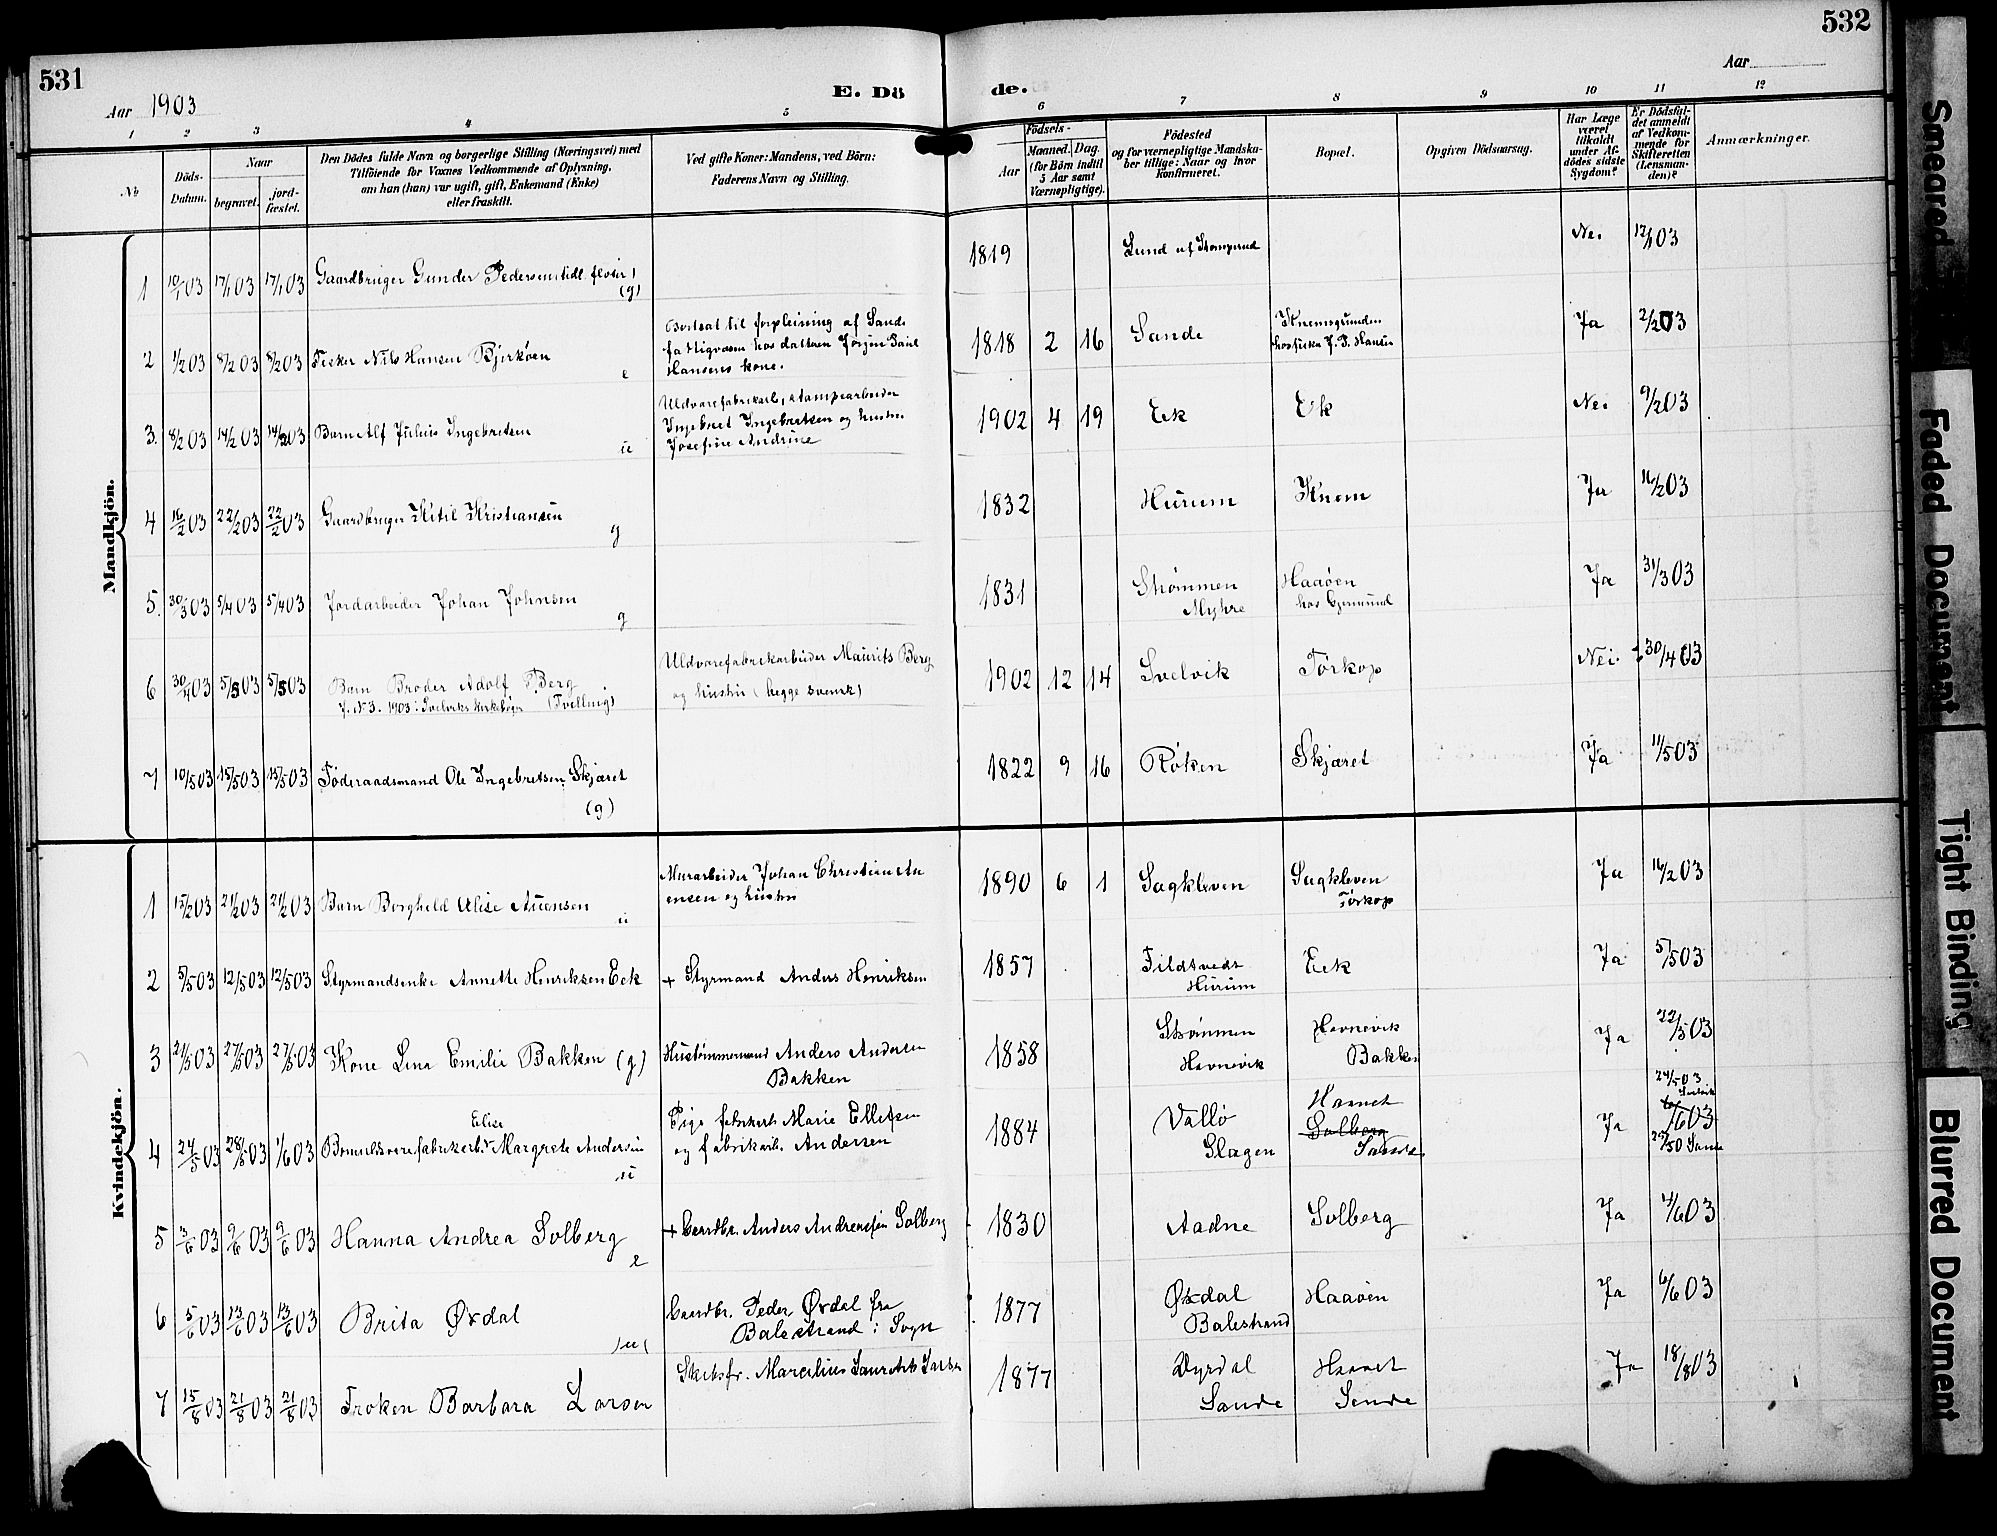 531
532
Aar 1903
E. Dö
de.
Aar
1 2 3 4 5 6 7 8 9 10 11 12
No
Döds-Datum.
Naar
begravet.
jord-fæstet.
Den Dödes fulde Navn og borgerlige Stilling (Næringsvei) med
Tilföiende for Voxnes Vedkommende af Oplysning,
om han (hun) var ugift, gift, Enkemand (Enke)
eller fraskilt.
Ved gifte Koner: Mandens, ved Börn:
Faderens Navn og Stilling.
Födsels-
Aar
Maaned. Dag.
(for Börn indtil
5 Aar samt
Værnepligtige).
Födested
og for værnepligtige Mandska-
ber tillige: Naar og hvor
Konfirmeret.
Bopæl.
Opgiven Dödsaarsag.
Har Læge
været
tilkaldt
under Af-
dödes sidste
Sygdom?
Er Dödsfal-
det anmeldt
af Vedkom-
mende for
Skifteretten
(Lensman-
den)?
Anmærkninger.
Mandkjön.
1 10/1 03 17/1 03 17/1 03 Gaardbruger Gunder Pedersen (g) 1819 Lund Nei 12/1 03
2 1/2 03 8/2 03 8/2 03 Fisker Nils Hansen Bjerköen e
Bortsat til forpleining af Sande
fattigvæsen hos datteren Jörgen
Hansens kone.
1818 2 16 Sande
hos fisker J. P. Hansen Ja 2/2 03
3. 8/2 03 14/2 03 14/2 03 Barn Alf Julius Ingebretsen u
Uldvarefabrikarb., stampearbeider
Ingebret Ingebretsen og hustru
Josefine Andrine
1902 4 19 Eek Ek Nei 9/2 03
4 16/2 03 22/2 03 22/2 03 Gaardbruger Kitil Kristiansen g 1832 Hurum Knem Ja 16/2 03
5. 30/3 03 5/4 03 5/4 03 Jordarbeider Johan Johnsen g 1831 Strømmen
Myhre Haaøen
hos Ja 31/3 03
6 30/4 03 5/5 03 5/5 03 Barn Broder Adolf Berg
J. N 3. 1903 i Svelviks kirkebog (Tvilling)
Uldvarefabrikarbeider Maurits Berg
og hustru (begge svensk)
1902 12 14 Svelvik Tørkop Nei 30/4 03
7 10/5 03 15/5 03 15/5 03 Føderaadsmand Ole Ingebretsen Skjæret
(g) 1822 9 16 Røken Skjæret Ja 11/5 03
Kvindekjön.
1 15/2 03 21/2 03 21/2 03 Barn Borghild Alise Auensen u
Murarbeider Johan Christian Au
ensen og hustru
1890 6 1 Sagkleven Sagkleven
Tørkop Ja 16/2 03
2 5/5 03 12/5 03 12/5 03 Styrmandsenke Annette Henriksen Eek + Styrmand Anders Henriksen 1857 Tildtvedt
Hurum Eek Ja 5/5 03
3 21/5 03 27/5 03 27/5 03 Kone Lina Emilie Bakken (g) Hustømmermand Anders Andersen
Bakken 1858 Strømmen
Havnevik Havnevik
Bakken Ja 22/5 03
4 24/5 03 28/5 03 1/6 03 Elise
Bomuldsvarefabrikarb. Margrete Andersen
u
Pige fabrikarb Marie Ellefsen
og fabrikarb. Andersen
1884 Vallø
Slagen Havnet
Solberg
Sande Ja 24/5 03
Svelvik
1/6 03
Sande
5 3/6 03 9/6 03 9/6 03 Hanna Andrea Solberg e + Gaardbr. Anders Andreassen Solberg 1830 Aadne Solberg Ja 4/6 03
6 5/6 03 13/6 03 13/6 03 Brita Øxdal (u) Gaardbr. Peder Øxdal fra
Balestrand i Sogn 1877 Øxdal
Balestrand Haaøen Ja 6/6 03
7 15/8 03 21/8 03 21/8 03 Frøken Barbara Larsen Skibsfr. Marcelius Laurits Larsen 1877 Dyrdal
Sande Havnet
Sande Ja 18/8 03
Smeared
Faded Document
Tight Binding
Blurred Document